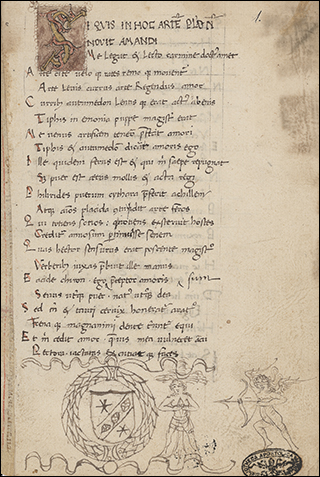 SI QVIS IN HOC ARTĒ PLOÑ
NOVIT AMANDI
Me Legat & Lecto carmine doct' amet
Arte cite velo q; rates remo q; moventʳ
Arte Leves currus arte Regendus amor
Curribʒ automedon Lentis q; erat apt' abenis
Tiphis in emonia puppe magist' erat
Me venus artificem tenero p̄fecit amori
Tiphis & automedon dicar amoris ego
Ille quidem ferus est & qui m̄ saepe repugnet
Sʒ puer est aetas mollis & acta regi
Phillirides puerum cythara p̄fecit achillem
Atq; aīos placida contudit arte feros
Qui totiens socios: quotiens exterruit hostes
Creditʳ annosum ptimuisse senem
Quas hector sensurus erat poscente magistʳ
Verberibʒ iussas p̄buit ille manus
Eacide chiron: ego p̄ceptor amoris & sum
Sevus utq; puer: nat' utq; dea
Sed tn̄ & tauri cervix honeratʳ aratʳ
Frena q; magnanimi dente terunt equi
Et m̄ cedit amor: quis mea vulneret arcu
Pectora: iactatas excutiat q; faces